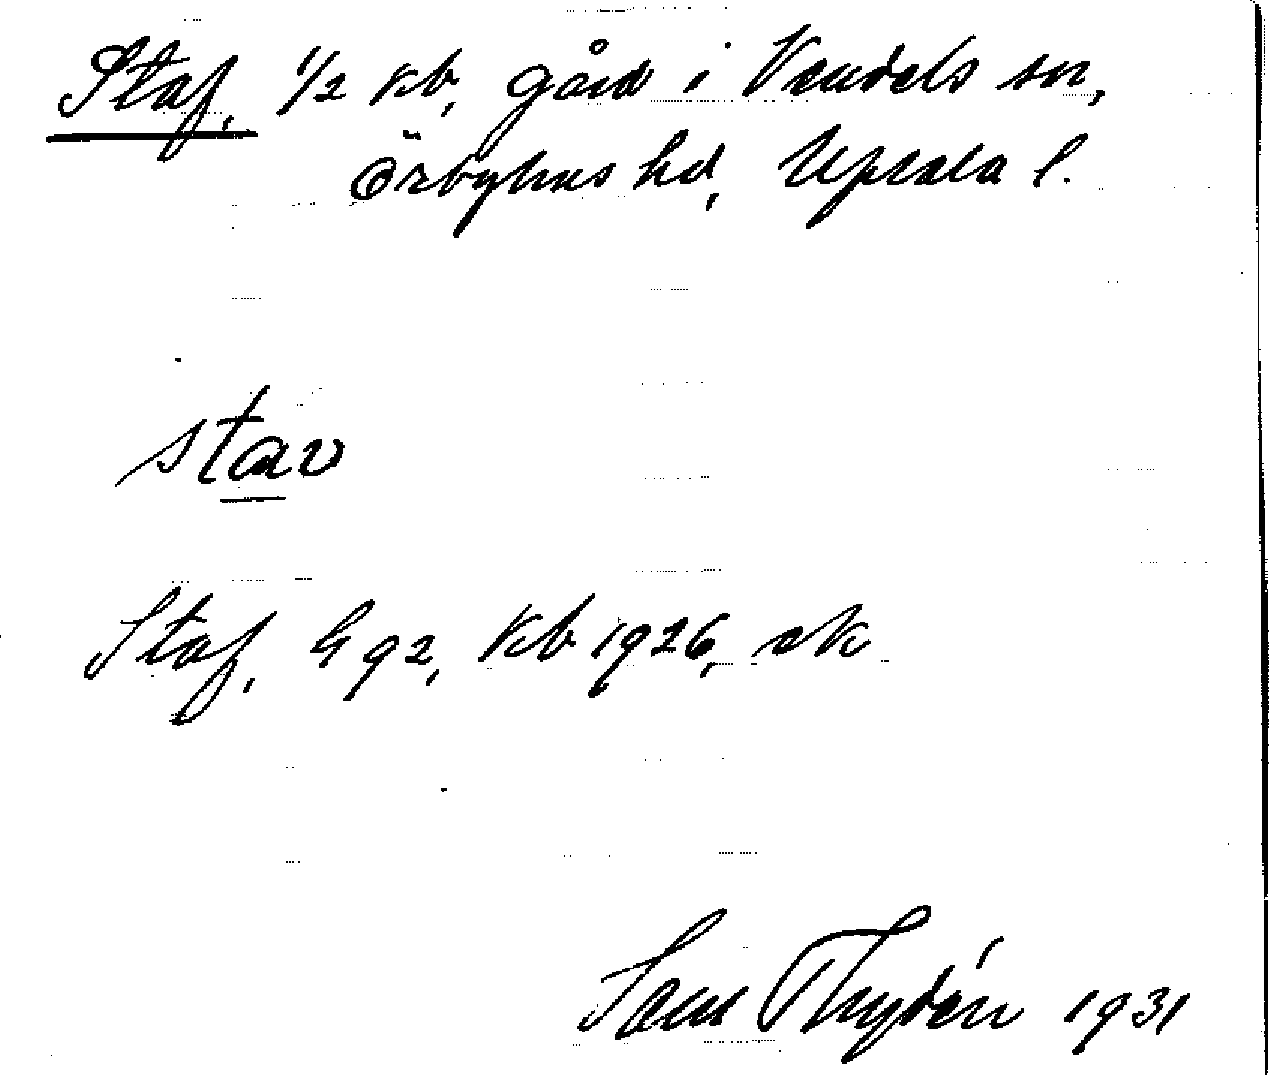 Staf, 1/2 kb, gård i Vendels sn,
Örbyhus hd, Upsala l.
stav
Staf, G 92, Kb 1926, ek
Thydén 1931